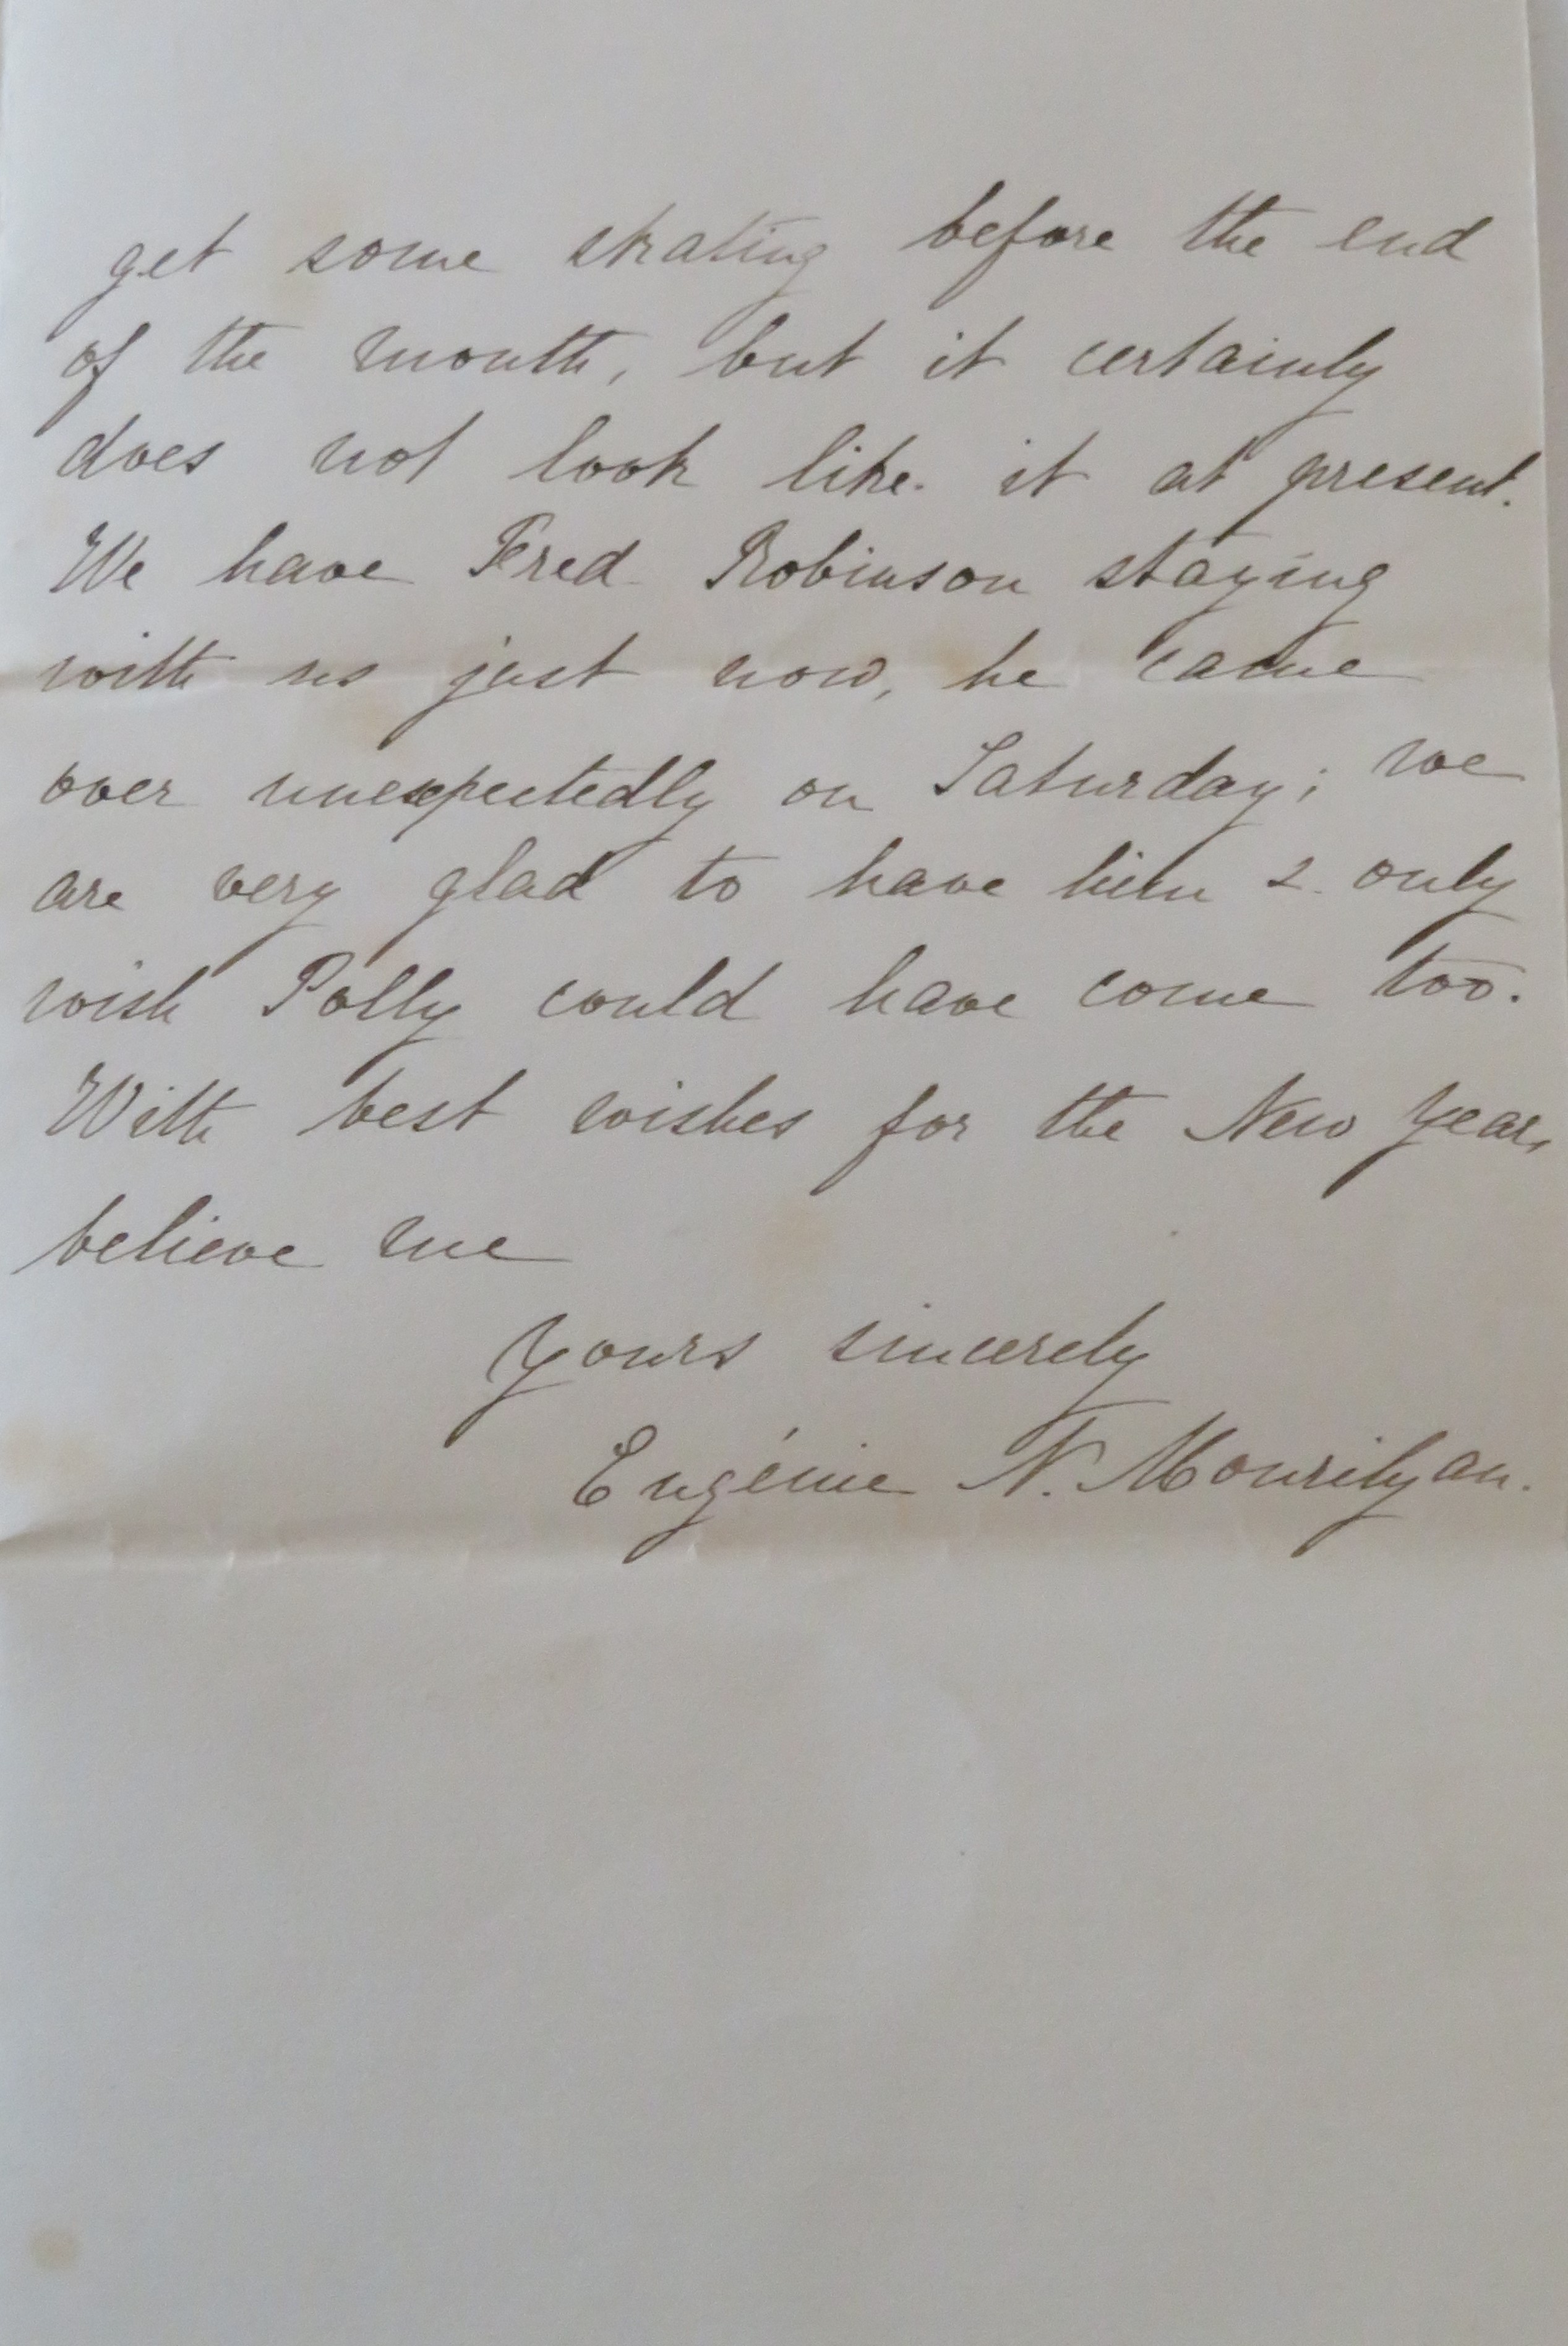 get some skating before the end
of the month, but it certainly
does not look like it at present.
We have Fred Robinson staying
with us just now, he came
over unexpectedly on Saturday; we
are very glad to have him & only
wish Polly could have come too.
With best wishes for the New Year,
believe me
Yours sincerely
Eugénie N. Mourilyan.